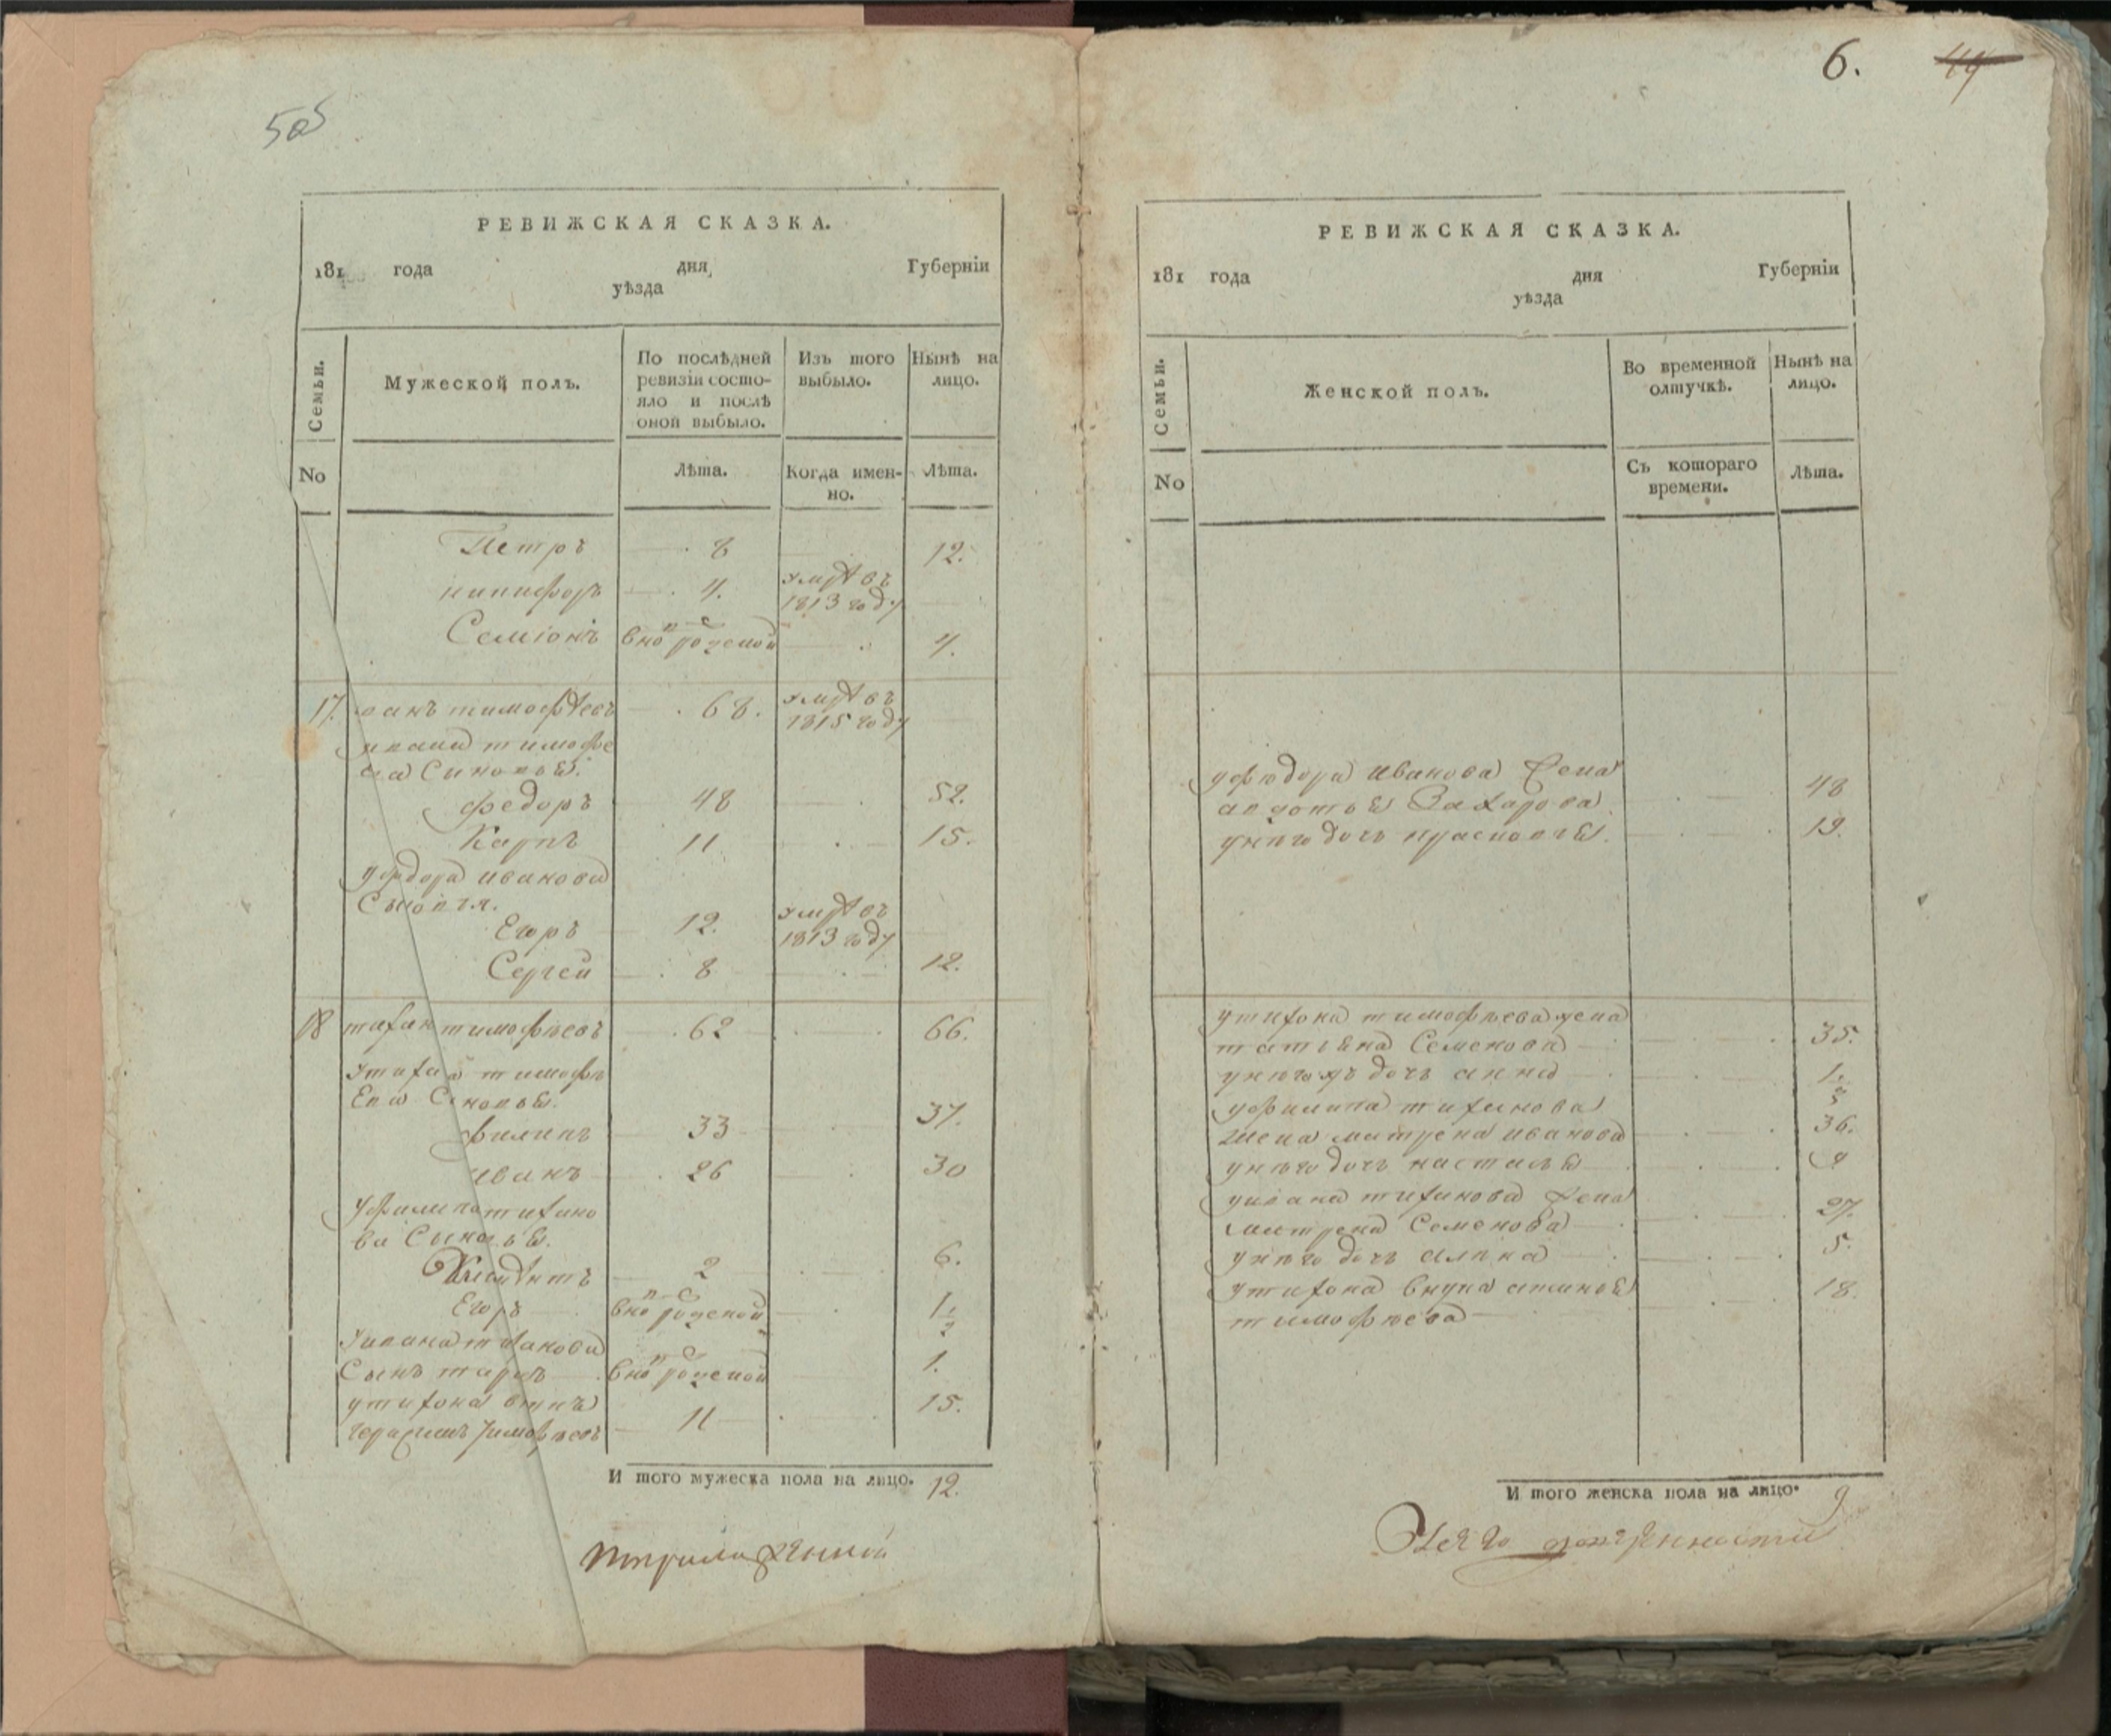 505
РЕВИЖСКАЯ СКАЗКА.
181 года дня Губерніи
уѣзда
Семьи.
Мужеской полъ.
По послѣдней
ревизіи состо-
яло и послѣ
оной выбыло.
Изъ того
выбыло.
Нынѣ на
лицо.
No
Лѣта.
Когда имен-
но.
Лѣта.
Петръ 8 12.
никифоръ 4. умре въ
1813 году
Семіонъ вновь рожденой 4.
17. тимофѣевъ 68. умре въ
1815 году
ивана тимофе
ва Синовья.
федоръ 48 52.
Карпъ 11 15.
уфедора иванова
Сыновья.
Егоръ 12. умре въ
1813 году
Сергей 8 12.
18 тихан тимофѣевъ 62 66.
утихана тимофѣ
Ева Синовья.
филипъ 33 37.
иванъ 26 30
уфилипа тихано
ва Сыновья.
2 6.
Егоръ вновь рожденой 1/2
уивана тиханова
Сынъ вновь рожденой 1.
утихона внукъ
герасимъ тимофѣевъ 11 15.
И того мужеска пола на лицо. 12.
6. 44
РЕВИЖСКАЯ СКАЗКА.
181 года дня Губерніи
уѣзда
Семьи.
Женской полъ.
Во временной
отлучкѣ.
Нынѣ на
лицо.
No
Съ котораго
времени.
Лѣта.
уфедора иванова жена
авдотья Захарова 48
унего дочь прасковья. 19.
утихона тимофѣева жена
татьяна Семенова 35.
унегожъ дочь анна 1
уфилипа тиханова
жена матрена иванова 36.
унего дочь настасья 9
уивана тиханова жена
матрена Семенова 27.
унего дочь алена 5.
утихона внука
тимофѣева 18.
И того женска пола на лицо. 9